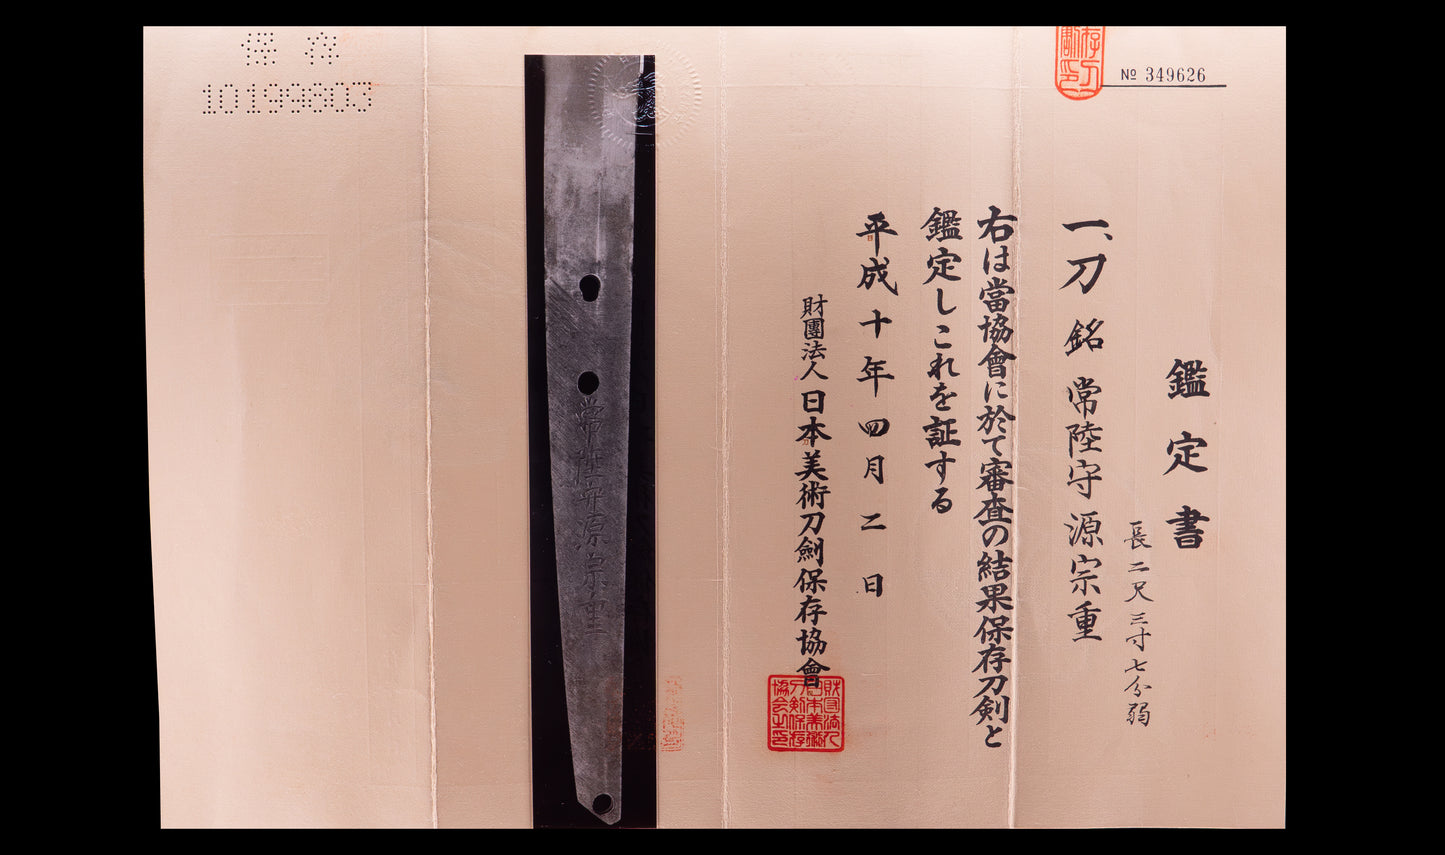 No 349626
鑑定書
長二尺三寸七分弱
一、刀 銘 常陸守源宗重
右は當協會に於て審査の結果保存刀剣と
鑑定しこれを証する
平成十年四月二日
財團法人 日本美術刀劍保存協會
常陸守源宗重
保存
10199803